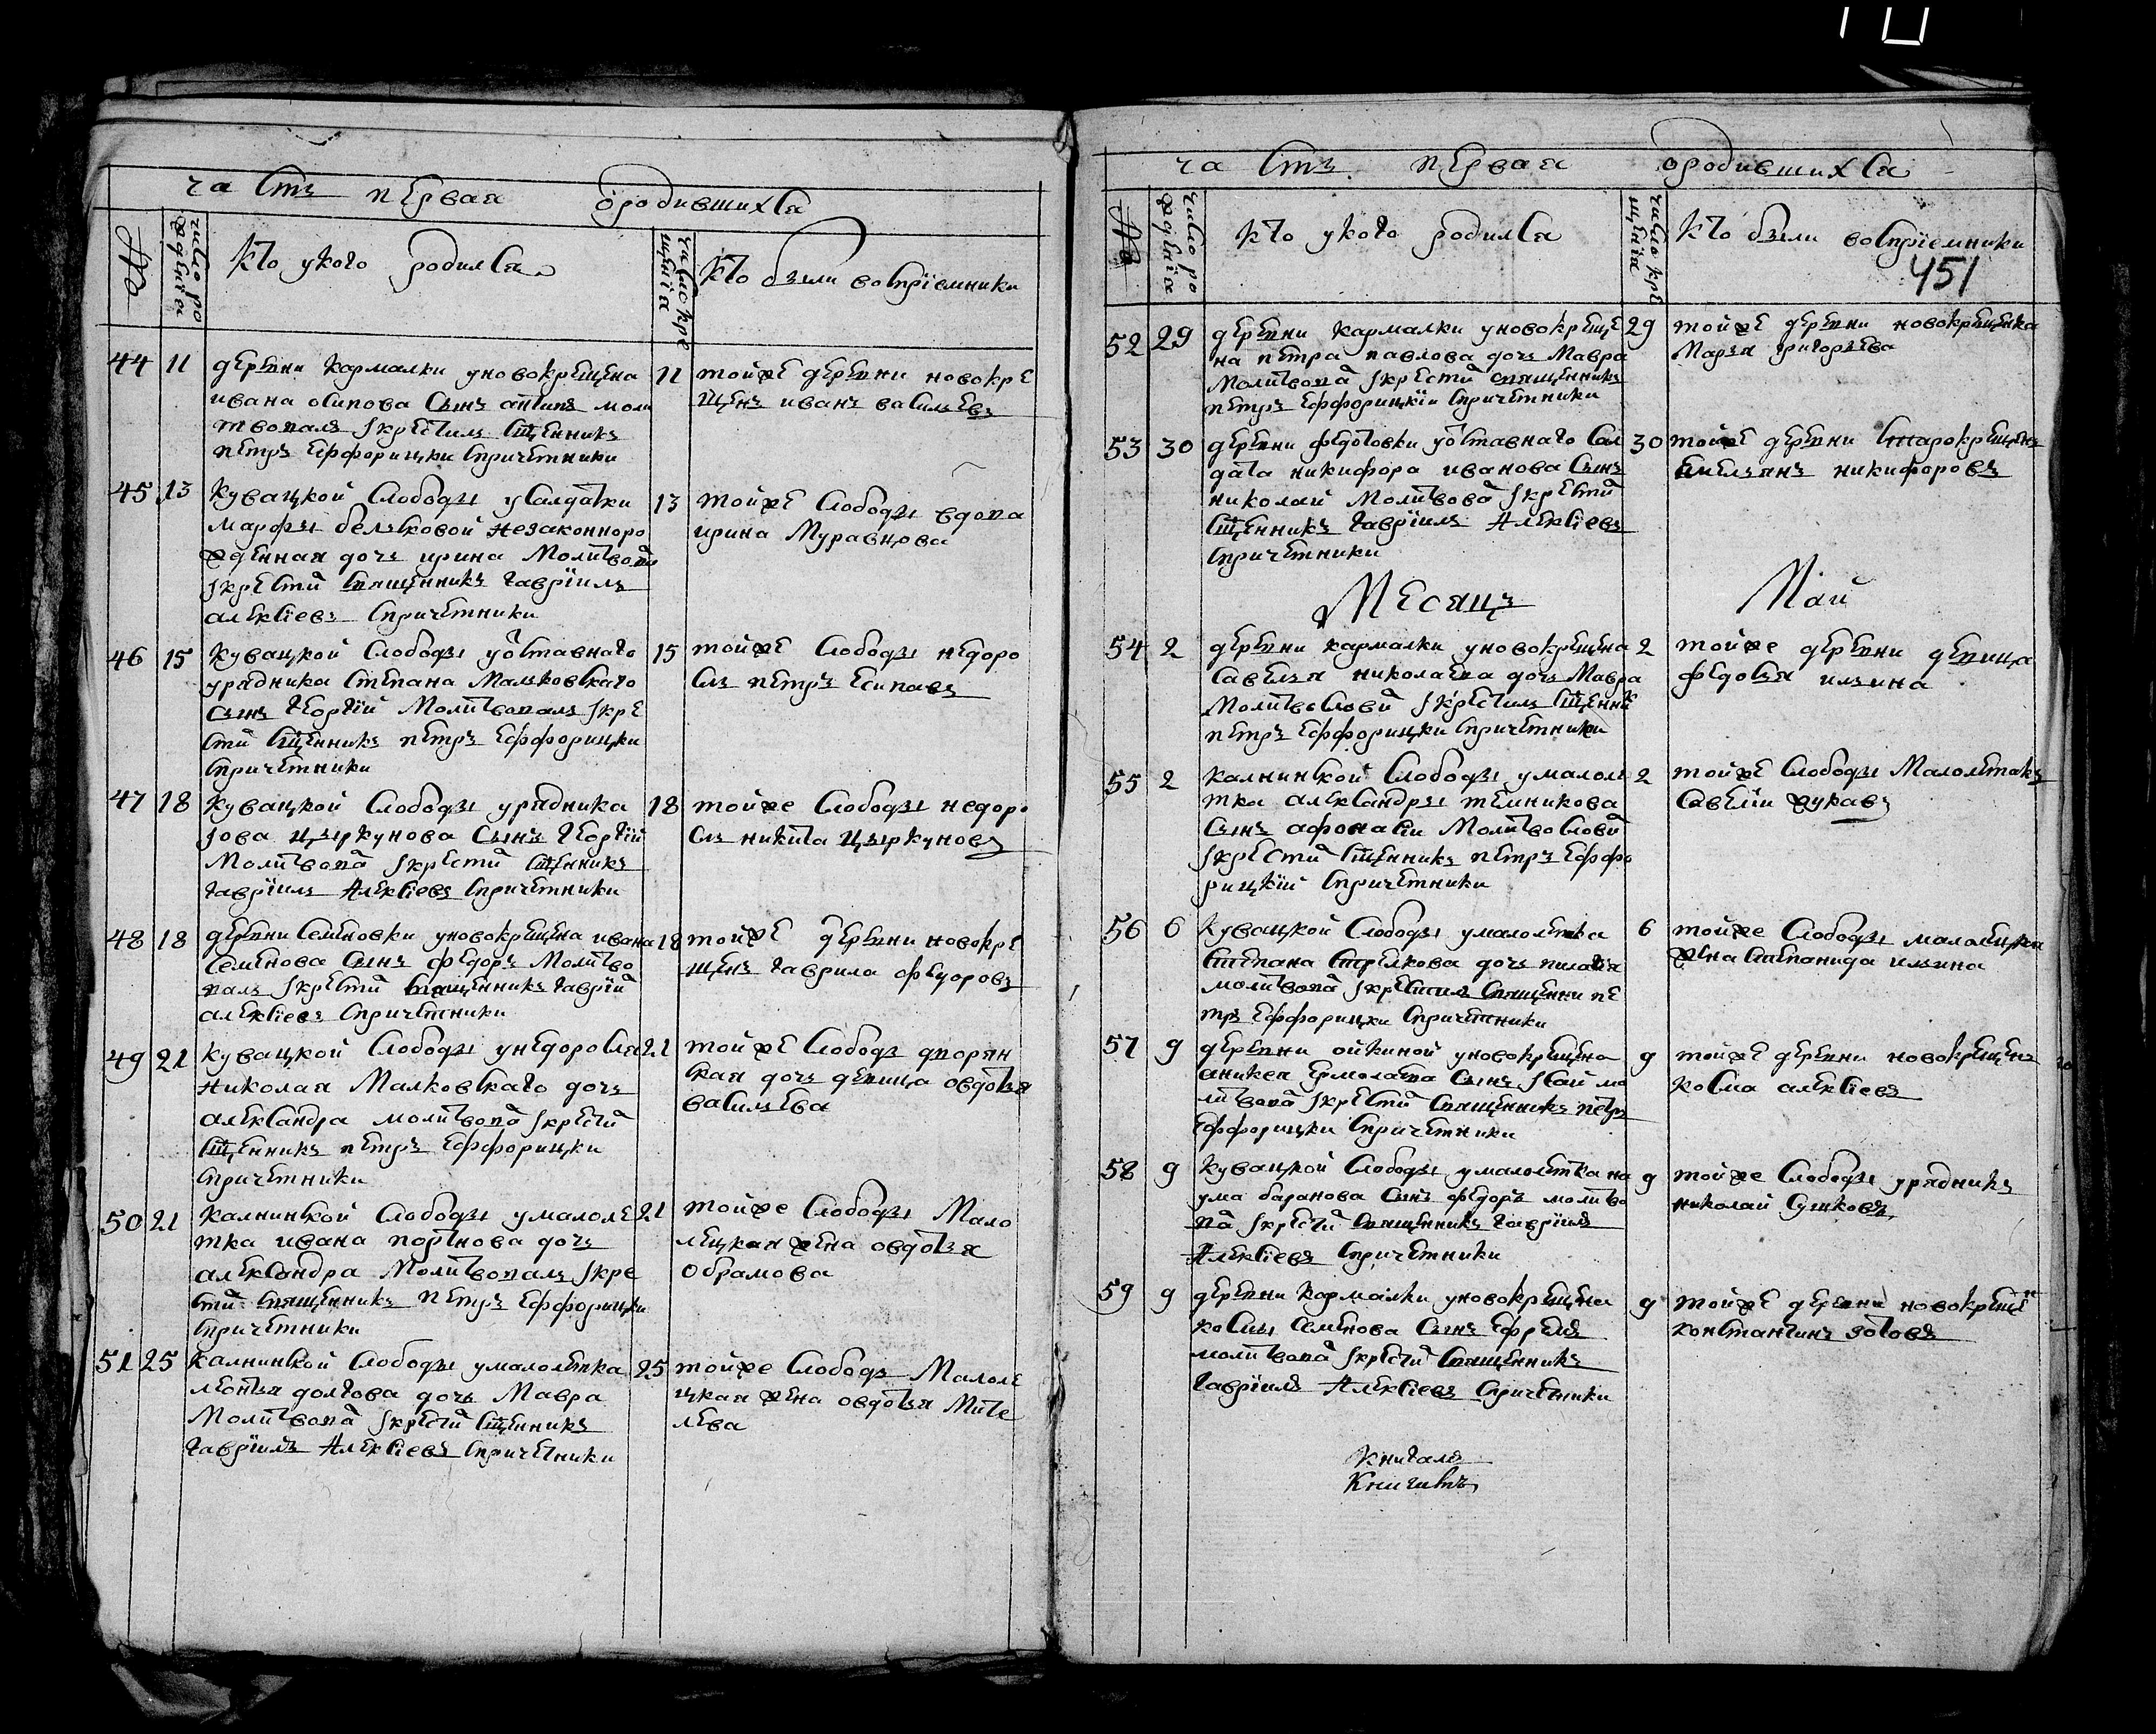 часть первая ородившихся
№
число рождения
кто укого родился
число крещения
кто были восприемники
44 11 деревни кармалки уновокрещена
ивана осипова сынъ антипъ моли
твовалъ Iкрестилъ сщенникъ
петръ Еффорицки спричетники
11 тойже деревни новокре
щенъ иванъ васильевъ
45 13 Кувацкой слободы усалдатки
марфы бельковой незаконноро
жденная дочь ирина Молитвова
Iкрести священникъ гаврiилъ
алексiевъ спричетники
13 тойже слободы вдова
ирина Муравцова
46 15 Кувацкой слободы уотставнаго
урядника степана Мальковскаго
сынъ георгiй Молитвовалъ Iкре
сти сщенникъ петръ Еффорицки
спричетники
15 тойже слободы недоро
сль петръ Есиповъ
47 18 Кувацкой слободы урядника
Iова цыркунова сынъ георгiй
Молитвова Iкрести сщенникъ
гаврiилъ Алексiевъ спричетники
18 тойже слободы недоро
сль никита цыркуновъ
48 18 деревни семеновки уновокрещена ивана
семенова сынъ федоръ Молитво
валъ Iкрести священникъ гаврiи
алексiевъ спричетники
18 тойже деревни новокре
щенъ гаврила федоровъ
49 21 Кувацкой слободы унедоросля
Николая Малковскаго дочь
александра молитвова Iкрести
сщенникъ петръ Еффорицки
спричетники
21 тойже слободы дворян
ская дочь девица овдотья
васильева
50 21 Калнинской слободы умалоле
тка ивана портнова дочь
александра Молитвовалъ Iкре
сти священникъ петръ Еффорицки
спричетники
21 тойже слободы Мало
лецкая жена овдотья
обрамова
51 25 Калнинской слободы умалолетка
леонтья долгова дочь Мавра
Молитвова Iкрести сщенникъ
гаврiилъ Алексiевъ спричетники
25 тойже слободы Малоле
цкая жена овдотья Мите
лева
часть первая ородившихся
№
число рождения
кто укого родился
число крещения
кто были восприемники
451
52 29 деревни кармалки уновокреще
на петра павлова дочь Мавра
Молитвова Iкрести священникъ
петръ Еффорицкiи спричетники
29 тойже деревни новокрещенка
Марья григорьева
53 30 деревни федотовки уотставнаго сал
дата никифора иванова сынъ
николай Молитвова Iкрести
сщенникъ гаврiилъ Алексiевъ
спричетники
30 тойже деревни старокрещенъ
Емельянъ никифоровъ
Месяцъ Май
54 2 деревни кармалки уновокрещена
савелья николаева дочь Мавра
Молитвослови Iкрестилъ сщенни
петръ Еффорицки спричетники
2 тойже деревни девица
федосья ильина
55 2 Калнинской слободы умалоле
тка александры темникова
сынъ афонасiи Молитвослови
Iкрести сщенникъ петръ Еффо
рицкiи спричетники
2 тойже слободы Малолетакъ
савелiи жукавъ
56 6 Кувацкой слободы умалолетка
степана стрелкова дочь пилагiя
молитвова Iкрестилъ священни пе
тръ Еффорицки спричетники
6 тойже слободы малолецкая
жена степанида ильина
57 9 деревни ойкиной уновокрещена
аникея ермолаева сынъ Iсаи мо
литвова Iкрести священникъ петръ
Еффорицки спричетники
9 тойже деревни новокрещенъ
косма алексiевъ
58 9 Кувацкой слободы умалолетка на
ума баранова сынъ федоръ молитво
ва Iкрести священникъ гаврiилъ
Алексiевъ спричетники
9 тойже слободы урядникъ
николай сушковъ
59 9 деревни кармалки уновокрещена
космы семенова сынъ ефремъ
молитвова Iкрести священникъ
гаврiилъ Алексiевъ спричетники
9 тойже деревни новокрещен
константинъ зотовъ